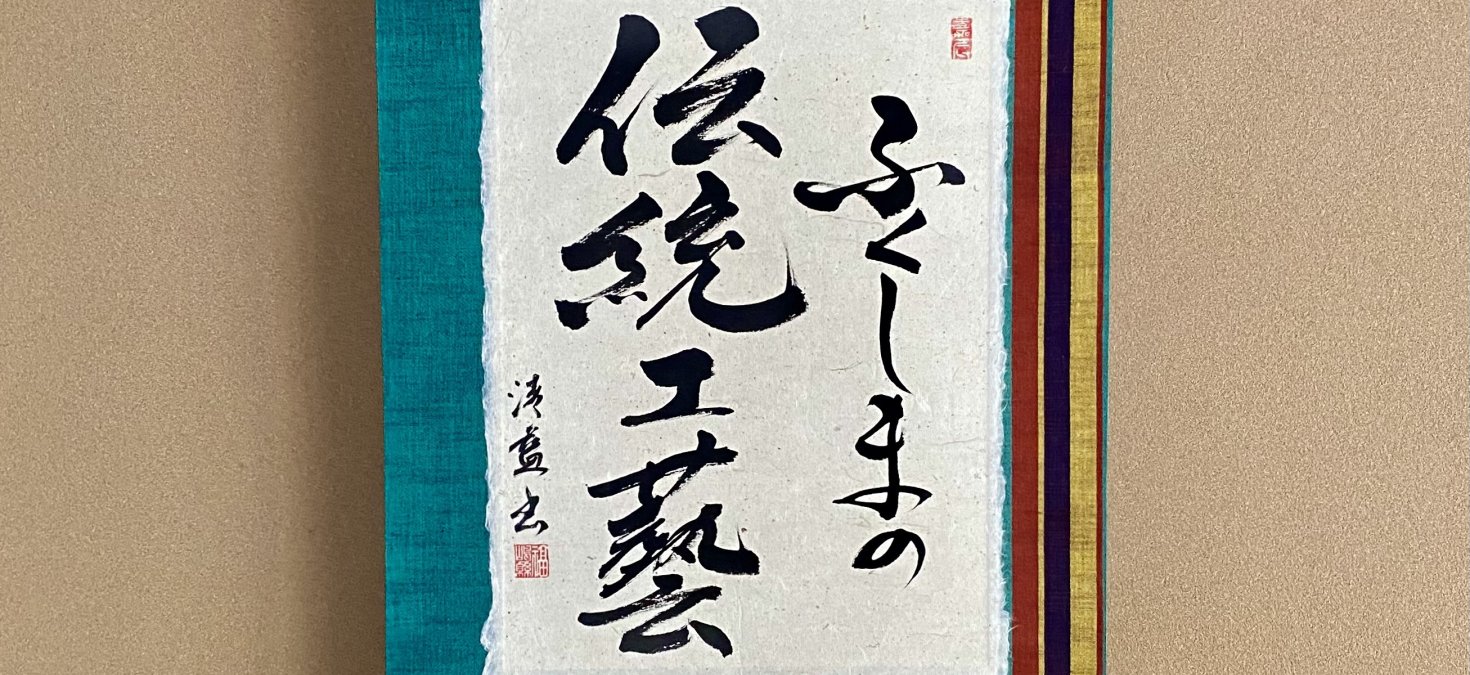 ふくしまの
伝統工藝
清藍書